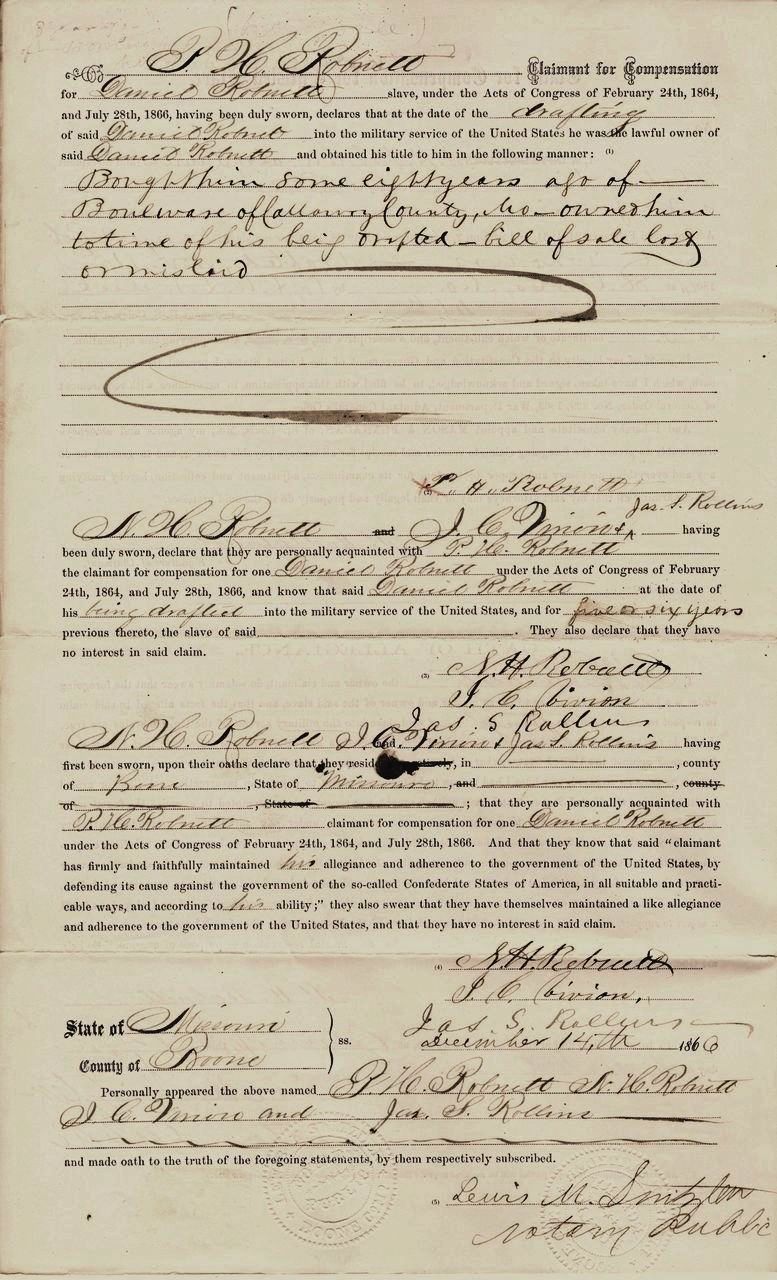 P. H. Robnett Claimant for Compensation
for Daniel Robnett slave, under the Acts of Congress of February 24th, 1864,
and July 28th, 1866, having been duly sworn, declares that at the date of the drafting
of said Daniel Robnett into the military service of the United States he was the lawful owner of
said Daniel Robnett and obtained his title to him in the following manner: (1)
Bought him some eight years ago of —
Boulware of Callaway County, Mo — owned him
to time of his beig drafted — bill of sale lost
or mislaid
(2) P. H. Robnett
Jas. S. Rollins
N. H. Robnett and J. C. Vivion & having
been duly sworn, declare that they are personally acquainted with P. H. Robnett
the claimant for compensation for one Daniel Robnett under the Acts of Congress of February
24th, 1864, and July 28th, 1866, and know that said Daniel Robnett at the date of
his being drafted into the military service of the United States, and for five or six years
previous thereto, the slave of said . They also declare that they have
no interest in said claim.
(3) N. H. Robnett
J. C. Vivion
Jas. S Rollins
N. H. Robnett J. C. Vivion & Jas S. Rollins having
first been sworn, upon their oaths declare that they reside respectively, in , county
of Boone , State of Missouri , and , county
of , State of ; that they are personally acquainted with
P. H. Robnett claimant for compensation for one Daniel Robnett
under the Acts of Congress of February 24th, 1864, and July 28th, 1866. And that they know that said "claimant
has firmly and faithfully maintained his allegiance and adherence to the government of the United States, by
defending its cause against the government of the so-called Confederate States of America, in all suitable and practi-
cable ways, and according to his ability;" they also swear that they have themselves maintained a like allegiance
and adherence to the government of the United States, and that they have no interest in said claim.
(4) N. H. Robnett
J. C. Vivion,
Jas. S. Rollins
State of Missouri
ss. December 14th 1866
County of Boone
Personally appeared the above named P. H. Robnett N. H. Robnett
J C. Vivion and Jas. S. Rollins
and made oath to the truth of the foregoing statements, by them respectively subscribed.
(5) Lewis M.
Notary Public